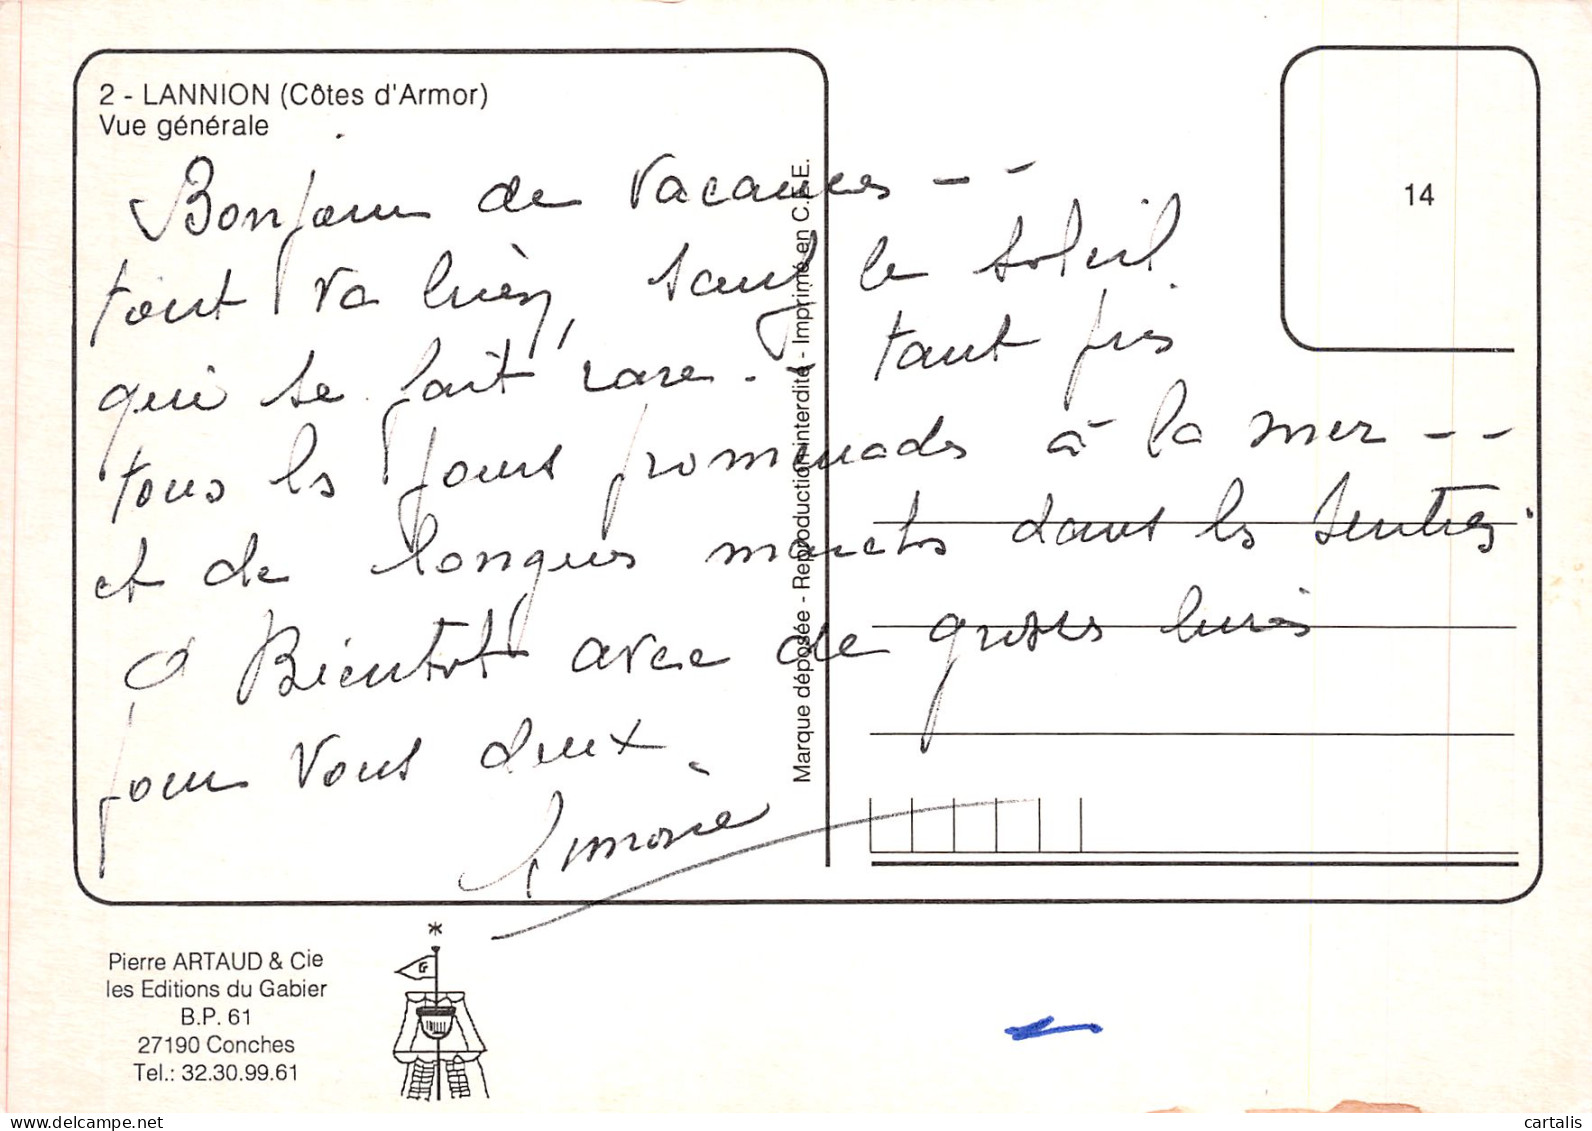 2 - LANNION (Côtes d'Armor)
Vue générale
14
Bonjour de vacances - -
tout va bien, sauf le soleil
qui se fait rare - - tant pis
tous les jours promenades à la mer - -
et de longues marches dans les sentiers.
A Bientôt avec de grosses bises
pour vous deux.
Simone
Marque déposée - Reproduction interdite - Imprimé en C.E.E.
Pierre ARTAUD & Cie
les Editions du Gabier
B.P. 61
27190 Conches
Tel.: 32.30.99.61
www.delcampe.net
cartalis